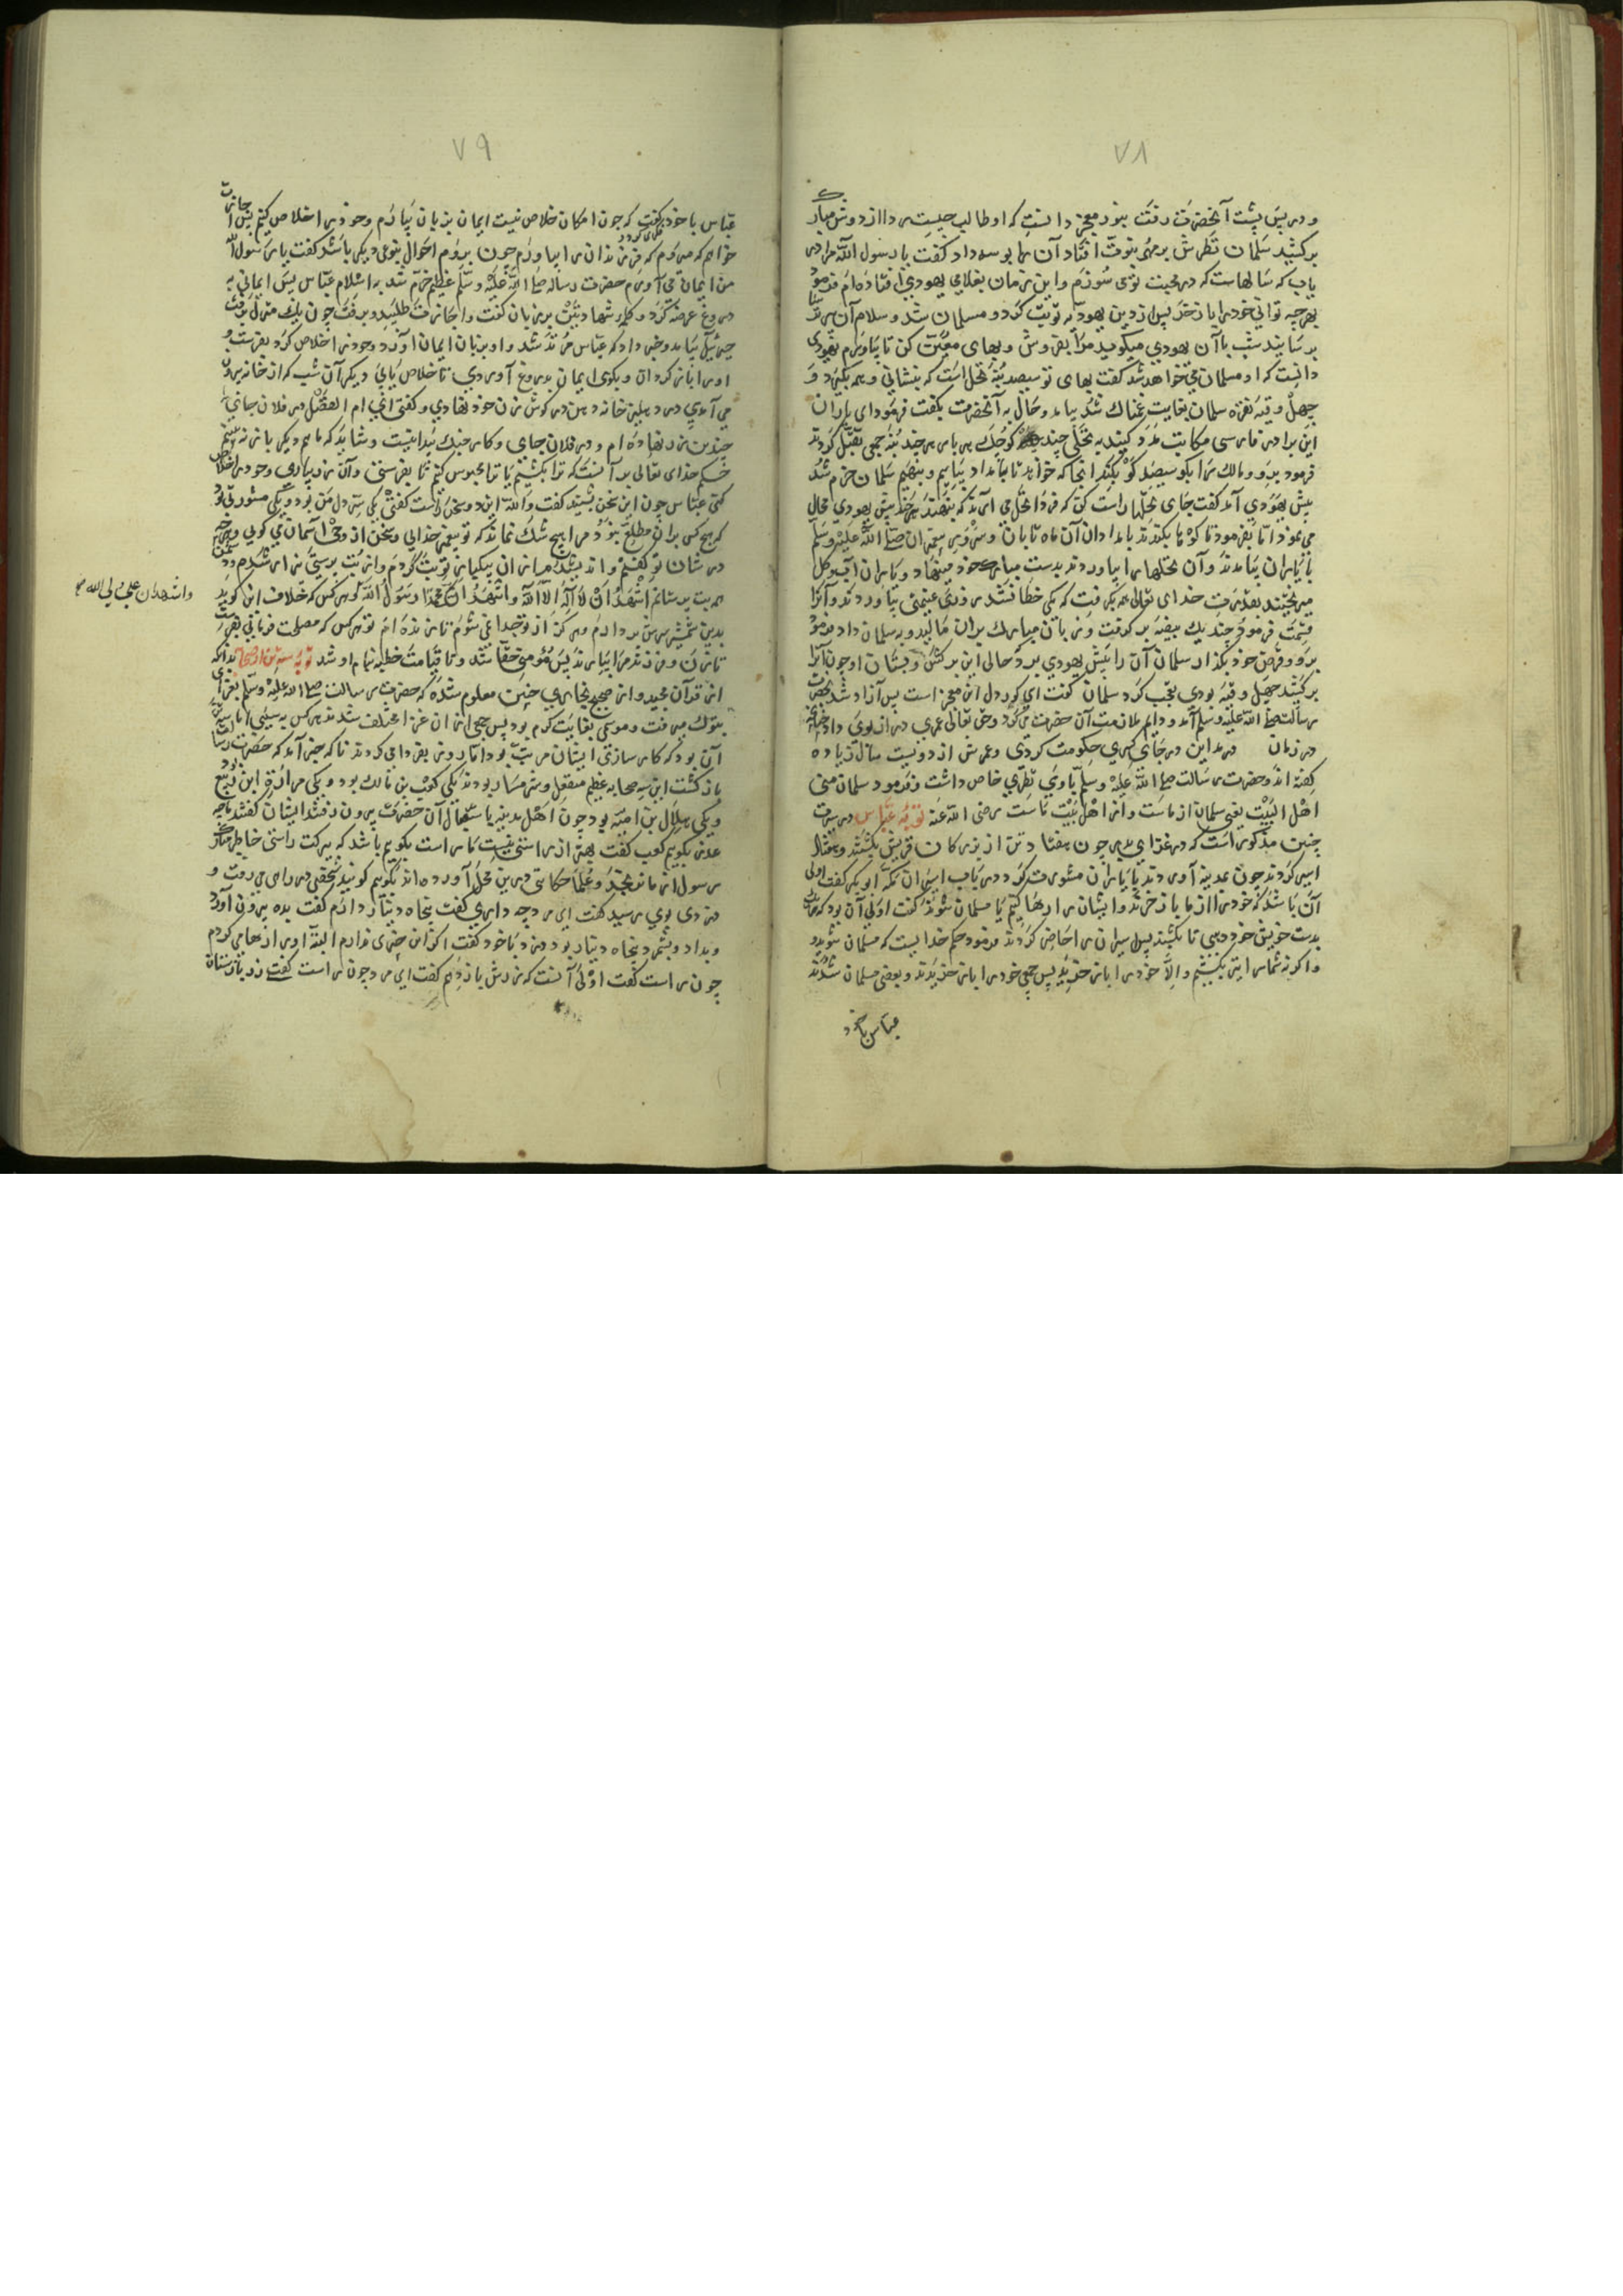 ۷۸
و در پس پشت آنحضرت رفت بنور معجز دانست که او طالب چیست ردا از دوش مبارک
برکشید سلمان نظرش بر مهر نبوت افتاد آن را بوسه داد و کفت یا رسول الله مرا در
یاب که سالهاست که در محبت تو می سوزم و این زمان بغلامی یهودی افتاده ام فرمود
بهر چه توانی خود را باز خر پس از دین یهود به توبت کرد و مسلمان شد و سلام آن سرور
برسانید شب با آن یهودی میکوید مرا بفروش و بهای معین کن تا بیاورم یهودی
دانست که او مسلمان می خواهد شد کفت بهای تو سیصد بنه نخل است که بنشانی و همه بکیرد و
چهل وقیه نقره سلمان بغایت غمناک شد بیامد و حال به آنحضرت بکفت فرمود ای یاران
این برادر فارسی مکاتبت مدد کنید به نخلی چند کوچک هر یاری هر چند بنه جمعی تقبل کردند
فرمود برو و مالک را بکو سیصد کو بکند انجا که خواهد تا بامداد بیاییم و بنهیم سلمان خرم شد
پیش یهودی آمد کفت جای نخلها راست کن که فردا نخل می آرند که بنهند بهر خط پیش یهودی محال
می نمود اما بفرمود تا کو ها بکندند بامدادان آن ماه تابان و سرور پیغمبران صلی الله علیه وسلم
با یاران بیامدند و آن نخلها را بیاوردند بدست مبارک خود مینهاد و یاران آب و کل
میریختند بقدرت خدای تعالی همه بکرفت که یکی خطا نشد روزی غنیمتی بیاوردند و آنرا
قسمت فرمود چند یک بیضه بر کرفت و زبان مبارک بران مالید و به سلمان داد فرمود
برو و قرض خود بکذار سلمان آن را پیش یهودی برد حالی این برکش و بستان او چون آنرا
برکشید چهل وقیه بودی تعجب کرد سلمان کفت ای کوردل این معجز است پس آزاد شد بحضرت
رسالت صلی الله علیه وسلم آمد و دایم ملازمت آن حضرت می کرد و حق تعالی عمری دراز بوی داد چنانچه
در زمان در مداین در جای کسری حکومت کردی و عمرش از دویست سال زیاده
کفته اند و حضرت رسالت صلی الله علیه وسلم با وی نظری خاص داشت و فرمود سلمان منی
اهل البیت یعنی سلمان از ماست و از اهل بیت ماست رضی الله عنه توبه عباس در سیرت
چنین مذکور است که در غزای بدر چون هفتاد تن از بزرکان قریش بکشتند و هفتاد
اسیر کردند چون بمدینه آوردند با یاران مشورت کرد در باب اسیران مکه ابوبکر کفت اولی
آن باشد که خود را از ما باز خرند و ایشان را رها کنیم یا مسلمان شوند کفت اولی آن بود که
بدست خویش خود دهی تا بکشند پس اسیران را حاضر کردند فرمود حکم خدایست که مسلمان شوید و
و اکر نه شما را یتیغ بکشیم و الا خود را باز خرید پس جمعی خود را باز خریدند و بعضی مسلمان شدند
عباس با خود
۷۹
عباس با خود کفت که چون امکان خلاص نیست ایمان بزبان بیارم و خود را خلاص کنم پس اجازت
خواهم که میروم که فرزندان را بیاورم چون بروم احوال بنوعی دیکر باشد کفت یا رسول الله
من ایمان می آورم حضرت رساله صلی الله علیه وسلم عظیم خرم شد به اسلام عباس پس ایمانی به
دروغ عرضه کرد و کلمه شهادتین بر زبان کفت و اجازت طلبید و برفت چون یک منزل برفت
جبرئیل بیامد و خبر داد که عباس مرتد شد و او بزبان ایمان آورد و خود را خلاص کرد بفرست و
او را باز کردان و بکوی ایمان بدروغ آوردی تا خلاص یابی و دیکر آن شب که از خانه بیرون
می آمدی در دهلیز خانه دهن در کوش زن خود نهادی و کفتی انی ام الفضل در فلان جای
چندین زر نهاده ام و در فلان جای و کار جنک پیدا نیست و شاید که ما هم دیکر باز نه بینیم
حکم خدای تعالی برآنست که ترا بکشیم یا ترا محبوس کنم تا بفرستی و آن زر بیاری و خود را خلاص
کنی عباس چون این سخن بشنید کفت والله این دو سخن راست کفتی یکی سر دل من بود و یکی مشورتی بود
که هیچ کس بران مطلع نبود مرا هیچ شک نماند که تو پیغمبر خدایی و سخن از وحی آسمان می کویی و هر چه
در شان تو کفتم و اندیشیدم ازان بیکبار توبت کردم و از بت پرستی بیزار شدم
بربت پرستانم اشهد ان لا اله الا الله واشهد ان محمدا رسول الله کو هر کس که خلاف این کوید
واشهد ان علی ولی الله
بدین شمشیر سرش بردارم و هرکز از تو جدا نمی شوم تا زنده ام تو هر کس که مصلحت فرمانی بفرست
تا زن و فرزند مرا بیارند پس مؤمن حقا شد و تا قیامت خطبه بنام او شد توبه سه تن از صحابه بدانکه
از قرآن مجید و از صحیح بخاری چنین معلوم شده که حضرت رسالت صلی الله علیه وسلم بغزای
بتوک میرفت و موسمی بغایت کرم بود پس جمعی ازان غزا مختلف شدند هر کس به سببی اما سبب سه تن
آن بود که کار سازی ایشان مرتب بود اما روز بفردا می کردند تا که خبر آمد که حضرت رسالت
باز کشت این سه صحابه عظیم منفعل و شرمسار بودند یکی کعب بن مالک بود و یکی مرارة ابن ربیع
و یکی بهلال بن امیه بود چون اهل مدینه باستقبال آن حضرت بیرون رفتند ایشان کفتند ما چه
عذر بکویم کعب کفت بهتر از راستی نیست ما راست بکویم باشد که ببرکت راستی خاطر مبارک
رسول از ما نرنجد و علما حکایتی درین محل آورده اند بکویم کویند شخصی در راهی می رفت و
دزدی بوی رسید کفت ای مرد چه داری کفت پنجاه دینار دارم کفت بده بیرون آورد
و بداد و بشمرد پنجاه دینار بود دزد با خود کفت اکر این چیزی ندارم البته او را رها می کردم
چون راست کفت اولی آنست که زرش باز دهم کفت ای مرد چون راست کفتی زر باز ستان